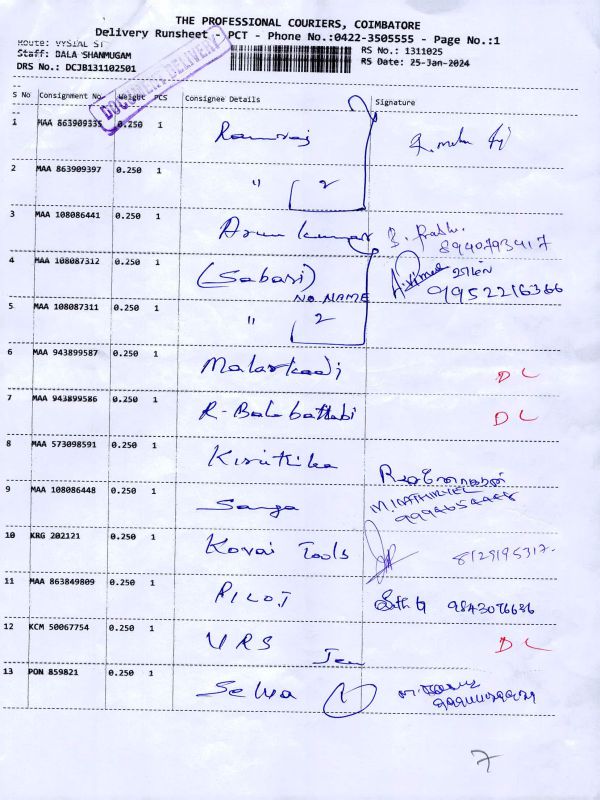 THE PROFESSIONAL COURIERS, COIMBATORE
Delivery Runsheet - PCT - Phone No.:0422-3505555 - Page No.:1
Route: VYSIAL ST
RS No.: 1311025
Staff: BALA SHANMUGAM
RS Date: 25-Jan-2024
DRS No.: DCJB131102501
DOCUMENT DELIVERY
S No Consignment No. Weight PCS Consignee Details Signature
1 MAA 863909335 0.250 1 Ramraj
2 MAA 863909397 0.250 1 " 2
3 MAA 108086441 0.250 1 Arun kumar 8940793417
4 MAA 108087312 0.250 1 (Sabari) NO NAME 9952216366
5 MAA 108087311 0.250 1 " 2
6 MAA 943899587 0.250 1 Malarkodi DL
7 MAA 943899586 0.250 1 R-Balabattabi DL
8 MAA 573098591 0.250 1 Kiruthika
9 MAA 108086448 0.250 1 Sanga M.KATHIRVEL
10 KRG 202121 0.250 1 Kovai Tools 8129195317.
11 MAA 863849809 0.250 1 PILOT 9843076636
12 KCM 50067754 0.250 1 URS DL
13 PON 859821 0.250 1 Selva 1
7